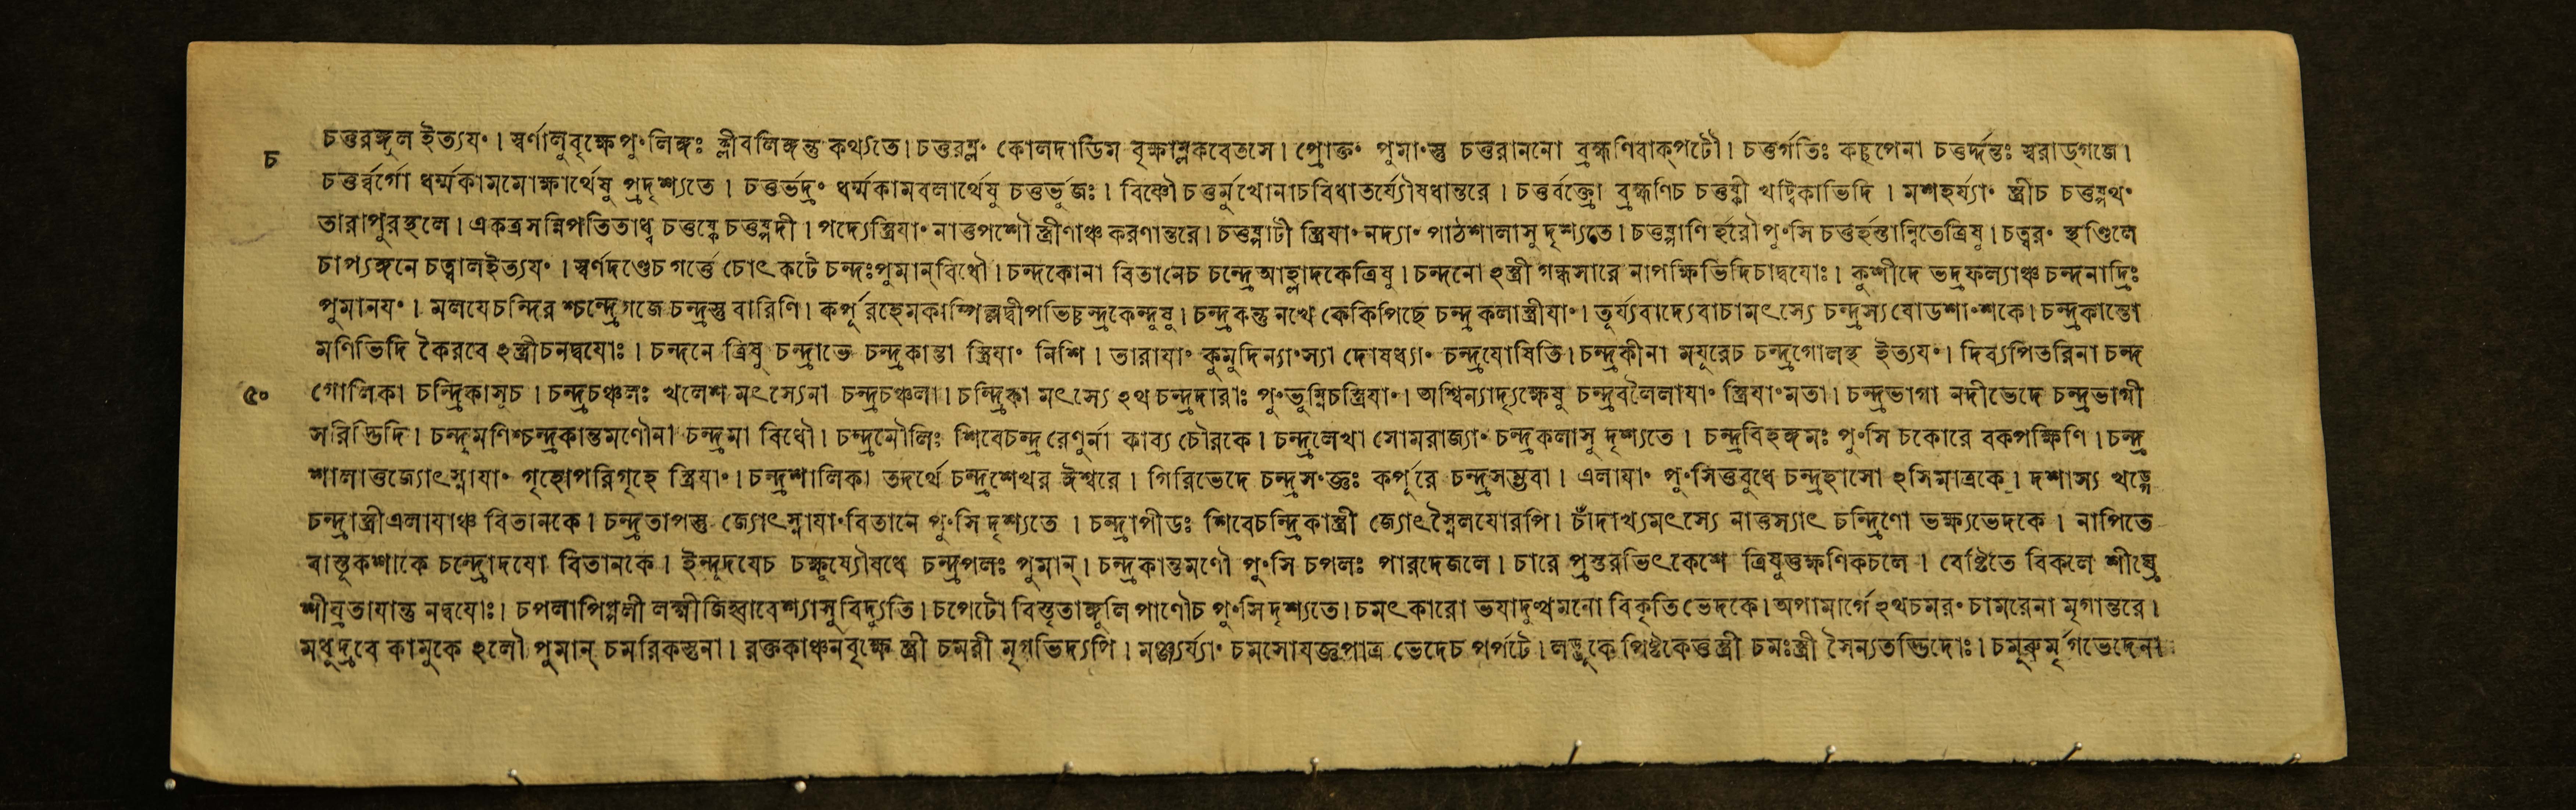 চ
চতুরঙ্গুল ইত্যয়ং। স্বর্ণালুবৃক্ষে পুংলিঙ্গঃ ক্লীবলিঙ্গন্তু কথ্যতে। চতুরম্লং কোলদাডিম বৃক্ষাম্লকবেতসে। প্রোক্তং পুমাংস্তু চতুরাননো ব্রহ্মণিবাক্‌পটৌ। চতুর্গতিঃ কচ্ছপেনা চতুর্দ্দন্তঃ স্বরাড্‌গজে।
চতুর্ব্বর্গো ধর্ম্মকামমোক্ষার্থেষু প্রদৃশ্যতে। চতুর্ভদ্রং ধর্ম্মকামবলার্থেষু চতুর্ভুজঃ। বিষ্ণৌ চতুর্মুখোনাচবিধাতর্য্যৌষধান্তরে। চতুর্বক্ত্রো ব্রহ্মণিচ চতুষ্কী খট্বিকাভিদি। মশহর্য্যাং স্ত্রীচ চতুষ্পথং
তারাপুরস্থলে। একত্রসন্নিপতিতাধ্ব চতুষ্কে চতুষ্পদী। পদ্যেস্ত্রিয়াং নাতুপশৌ স্ত্রীণাঞ্চ করণান্তরে। চতুষ্পাটী স্ত্রিয়াং নদ্যাং পাঠশালাসু দৃশ্যতে। চতুষ্পাণি র্হরৌপুংসি চতুর্হস্তান্বিতেত্রিষু। চত্বরং স্থণ্ডিলে
চাপ্যঙ্গনে চত্বালইত্যয়ং। স্বর্ণদণ্ডেচ গর্ত্তে চোৎকটে চন্দঃপুমান্‌বিধৌ। চন্দকোনা বিতানেচ চন্দ্রে আহ্লাদকেত্রিষু। চন্দনো ঽস্ত্রী গন্ধসারে নাপক্ষিভিদিচাদ্বয়োঃ। কুশীদে ভদ্রফল্যাঞ্চ চন্দনাদ্রিঃ
পুমানয়ং। মলয়েচন্দির শ্চন্দ্রেগজে চন্দ্রস্তু বারিণি। কর্পূরহেমকাম্পিল্লদ্বীপভিচ্চন্দ্রকেন্দুষু। চন্দ্রকস্তু নখে কেকিপিচ্ছে চন্দ্র কলাস্ত্রীয়াং। তূর্য্যবাদ্যেবাচামৎস্যে চন্দ্রস্যষোডশাংশকে। চন্দ্রকান্তো
মণিভিদি কৈরবে ঽস্ত্রীচনদ্বয়োঃ। চন্দনে ত্রিষু চন্দ্রাভে চন্দ্রকান্তা স্ত্রিয়াং নিশি। তারায়াং কুমুদিন্যাংস্যা দোষধ্যাং চন্দ্রয়োষিতি। চন্দ্রকীনা ময়ূরেচ চন্দ্রগোলস্থ ইত্যয়ং। দিব্যপিতরিনা চন্দ্র
৫০
গোলিকা চন্দ্রিকাসূচ। চন্দ্রচঞ্চলঃ খলেশ মৎস্যেনা চন্দ্রচঞ্চলা। চন্দ্রিকা মৎস্যে ঽথ চন্দ্রদারাঃ পুংভূম্নিচস্ত্রিয়াং। অশ্বিন্যাদ্যৃক্ষেষু চন্দ্রবলৈলায়াং স্ত্রিয়াংমতা। চন্দ্রভাগা নদীভেদে চন্দ্রভাগী
সরিদ্ভিদি। চন্দ্রমণিশ্চন্দ্রকান্তমণৌনা চন্দ্রমা বিধৌ। চন্দ্রমৌলিঃ শিবেচন্দ্র রেণুর্না কাব্য চৌরকে। চন্দ্রলেখা সোমরাজ্যাং চন্দ্রকলাসু দৃশ্যতে। চন্দ্রবিহঙ্গমঃ পুংসি চকোরে বকপক্ষিণি। চন্দ্র
শালাতুজ্যোৎস্নায়াং গৃহোপরিগৃহে স্ত্রিয়াং। চন্দ্রশালিকা তদর্থে চন্দ্রশেখর ঈশ্বরে। গিরিভেদে চন্দ্রসংজ্ঞঃ কর্পূরে চন্দ্রসম্ভবা। এলায়াং পুংসিতুবুধে চন্দ্রহাসো ঽসিমাত্রকে। দশাস্য খড়্গে
চন্দ্রাস্ত্রীএলায়াঞ্চ বিতানকে। চন্দ্রতাপস্তু জ্যোৎস্নায়াংবিতানে পুংসি দৃশ্যতে। চন্দ্রাপীডঃ শিবেচন্দ্রিকাস্ত্রী জ্যোৎস্নৈলয়োরপি। চাঁদাখ্যমৎস্যে নাতুস্যাৎ চন্দ্রিণো ভক্ষ্যভেদকে। নাপিতে
বাস্তূকশাকে চন্দ্রোদয়ো বিতানকে। ইন্দূদয়েচ চক্ষুষ্যৌষধে চন্দ্রপলঃ পুমান্। চন্দ্রকান্তমণৌ পুংসি চপলঃ পারদেজলে। চারে প্রস্তরভিৎকেশে ত্রিষুতুক্ষণিকচলে। বেষ্টিতে বিকলে শীঘ্রে
শীঘ্রতায়ান্তু নদ্বয়োঃ। চপলাপিপ্পলী লক্ষ্মীজিহ্বাবেশ্যাসুবিদ্যুতি। চপেটো বিস্তৃতাঙ্গুলি পাণৌচ পুংসি দৃশ্যতে। চমৎকারো ভয়াদুত্থমনো বিকৃতি ভেদকে। অপামার্গে ঽথচমরং চামরেনা মৃগান্তরে।
মধুদ্রবে কামুকে ঽলৌ পুমান্ চমরিকস্তুনা। রক্তকাঞ্চনবৃক্ষে স্ত্রী চমরী মৃগভিদ্যপি। মঞ্জর্য্যাং চমসোযজ্ঞপাত্র ভেদেচ পর্পটে। লড্ডুকে পিষ্টকেতুস্ত্রী চমঃস্ত্রী সৈন্যতদ্ভিদোঃ। চমূরুর্মৃগভেদেনা